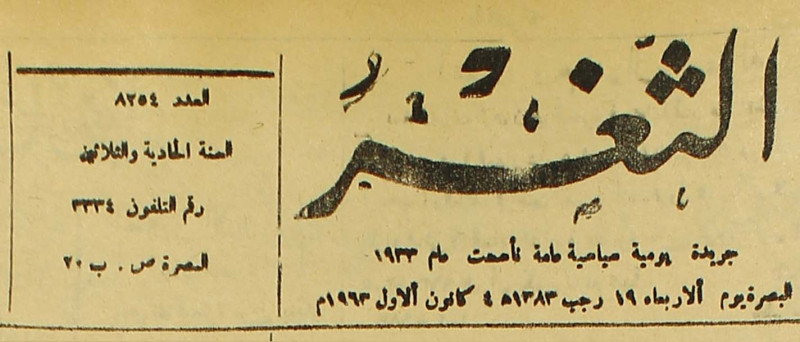 الثغر
جريدة يومية سياسية عامة تأسست عام ١٩٣٣
البصرة يوم الاربعاء ١٩ رجب ١٣٨٣ه ٤ كانون الاول ١٩٦٣م
العدد ٨٢٥٤
السنة الحادية والثلاثين
رقم التلفون ٣٣٣٤
البصرة ص . ب ٢٠